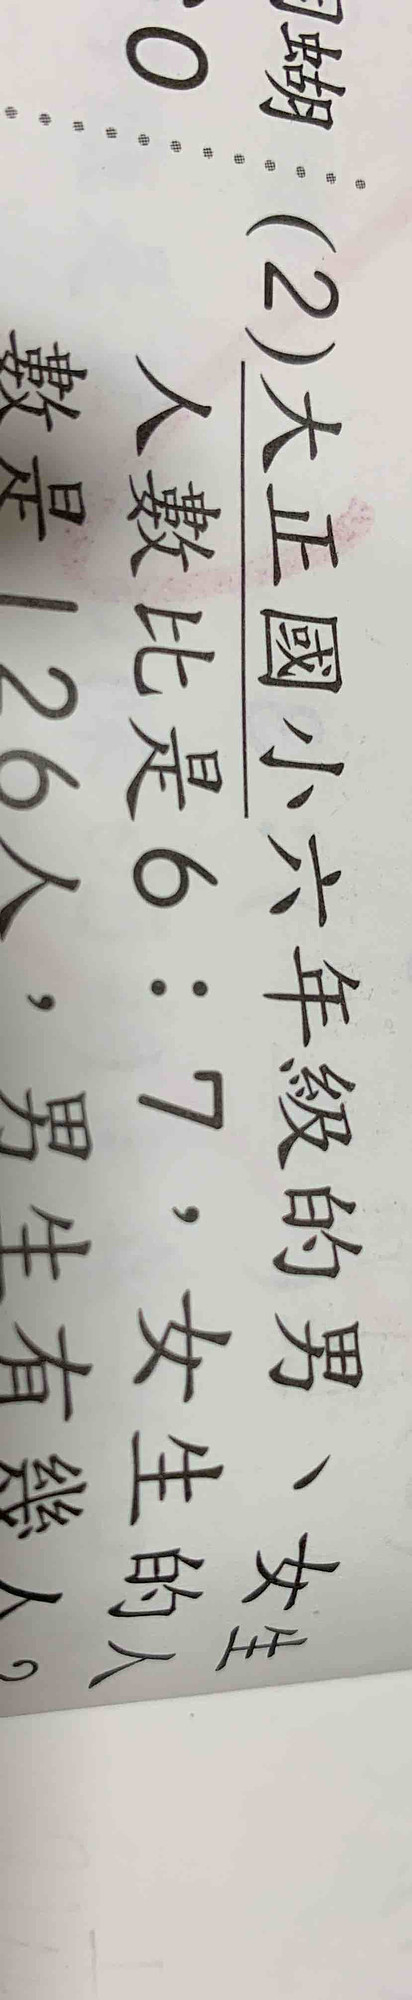 蝴
(2)大正國小六年級的男、女生
0
人數比是6：7，女生的人
數是126人，男生有幾人？